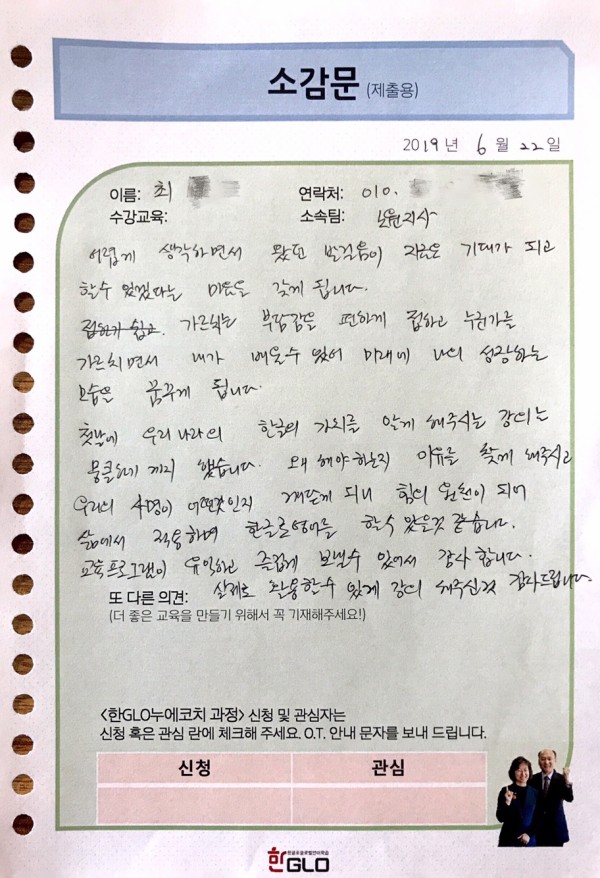 소감문 (제출용)
2019년 6월 22일
이름: 최
연락처: 010.
수강교육:
소속팀: 노원지사
어렵게 생각하면서 왔던 발걸음이 지금은 기대가 되고
할수 있겠다는 믿음을 갖게 됩니다.
접하기 쉽고 가르치는 부담감을 편하게 접하고 누군가를
가르치면서 내가 배울수 있어 미래에 나의 성장하는
모습을 꿈꾸게 됩니다.
첫날에 우리나라의 한글의 가치를 알게 해주시는 강의는
뭉클하기까지 했습니다. 왜 해야 하는지 이유를 찾게 해주시고
우리의 사명이 어떤것인지 깨닫게 되니 힘의 원천이 되어
삶에서 적용하며 한글로영어를 할수 있을것 같습니다.
교육프로그램이 유익하고 즐겁게 보낼수 있어서 감사합니다.
또 다른 의견: 실제로 활용할수 있게 강의 해주신것 감사드립니다
(더 좋은 교육을 만들기 위해서 꼭 기재해주세요!)
<한GLO누에코치 과정> 신청 및 관심자는
신청 혹은 관심 란에 체크해 주세요. O.T. 안내 문자를 보내 드립니다.
신청 관심
한GLO